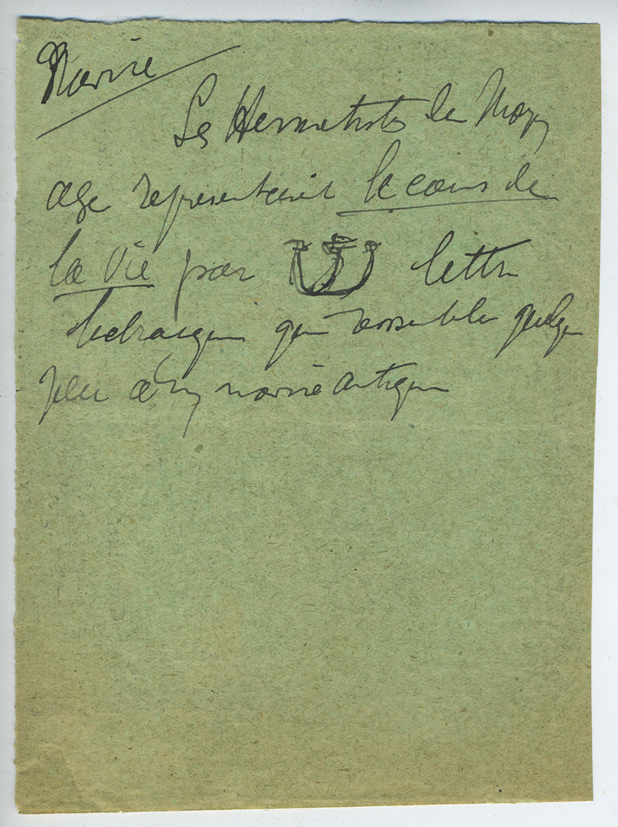 Navire
Les Hermetistes du Moyen
age représentaient le cours de
la Vie par ש lettre
hebraique qui ressemble quelque
peu à un navire antique